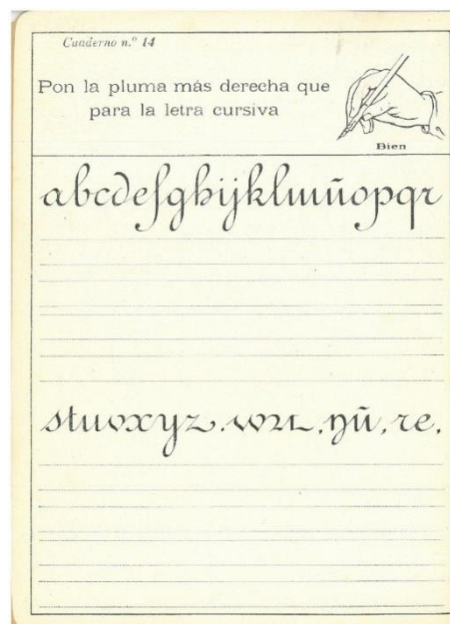 Cuaderno n.º 14
Pon la pluma más derecha que
para la letra cursiva
Bien
abcdefghijklmñopqr